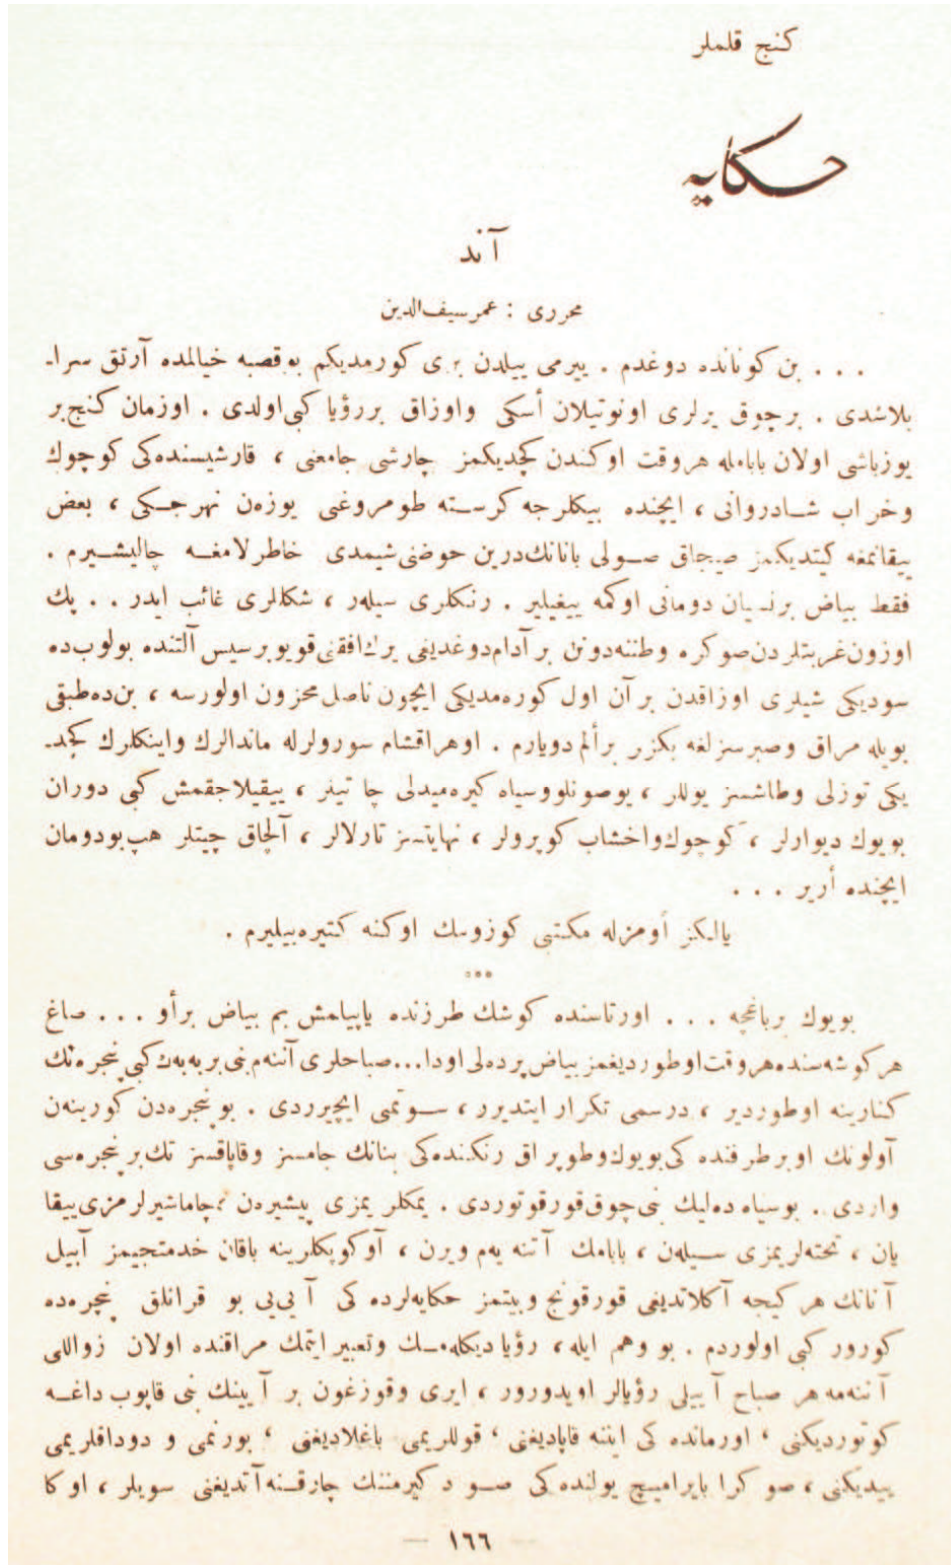 كنج قلملر
حكايه
آند
محرری : عمر سيف‌الدين
. . . بن كوناندە دوغدم . ييرمی ييلدن بری كورمديكم بو قصبه خيالمده آرتق سرا-
بلاشدی . بر چوق يرلری اونوتيلان أسكی واوزاق بر رؤيا كبی اولدی . اوزمان كنج بر
يوزباشی اولان بابامله هروقت اوكندن كچديكمز چارشی جامعنی ، قارشيسنده‌كی كوچوك
وخراب شادروانی ، ايچنده بيكلرجه كرسته طومروغی يوزەن نهرجكی ، بعض
ييقانمغه كيتديكمز صيجاق صولی بانانك درين حوضنی شيمدی خاطرلامغه چاليشيرم .
فقط بياض برنسيان دومانی اوكمه ييغيلير . رنكلری سيله‌ر ، شكللری غائب ايدر . . پك
اوزون غربتلردن صوكره وطننه دونن بر آدام دوغديغی يرك افقنی قويو بر سيس آلتنده بولوب‌ده
سوديكی شيلری اوزاقدن بر آن اول كوره‌مديكی ايچون ناصل محزون اولورسه ، بن‌ده طبقی
بويله مراق وصبرسزلغه بكزر بر ألم دويارم . اوهراقشام سورولرله ماندالرك واينكلرك كچد-
يكی توزلی وطاشسز يوللر ، يوصونلو وسياه كيره‌ميدلی چاتيلر ، ييقيلاجقمش كبی دوران
بويوك ديوارلر ، كوچوك واخشاب كوپرولر ، نهايتسز تارلالر ، آلچاق چيتلر هپ بودومان
ايچنده أرير . . .
يالكز أومزله مكتبی كوزومك اوكنه كتيره‌بيليرم .
°°°
بويوك برباغچه . . . اورتاسنده كوشك طرزنده ياپيلمش بم بياض برأو . . . صاغ
هركوشه‌سنده هروقت اوطورديغمز بياض پرده‌لی اودا... صباحلری آننه‌م بنی بر به‌بەك كبی پنجره‌نك
كنارينه اوطوردير ، درسمی تكرار ايتديرر ، سوتمی ايچيرردی . بو پنجره‌دن كورينەن
آولونك اوبر طرفنده كی بويوك وطوپراق رنكنده‌كی بنانك جامسز وقاپاقسز تك بر پنجره‌سی
واردی . بوسياه ده‌ليك بنی چوق قورقوتوردی . يمكلريمزی پيشيره‌ن ، چاماشيرلرمزی ييقا
يان ، تخته‌لريمزی سيله‌ن ، بابامك آتنه يەم ويرن ، آوكوپكلرينه باقان خدمتجيمز آبيل
آنانك هر كيجه آكلاتديغی قورقونج وبيتمز حكايه‌لرده كی آ يی‌يی بو قرانلق پنجره‌ده
كورور كبی اولوردم . بو وهم ايله ، رؤيا ديكله‌مك وتعبير ايتمك مراقنده اولان زواللی
آننه‌مه هر صباح آييلی رؤيالر اويدورور ، ايری وقوزغون بر آيينك بنی قاپوب داغه
كوتورديكنی ، اورمانده كی ايننه قاپاديغنی ، قوللريمی باغلاديغنی ، بورنمی و دوداقلريمی
ييديكنی ، صوكرا بايراميچ يولنده‌كی صو دكيرمننك چارقنه آتديغنی سويلر ، اوكا
— ١٦٦ —